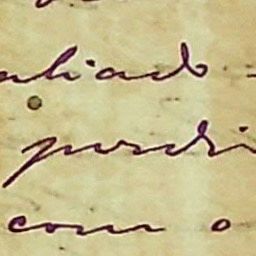 aliado
perdi
com o